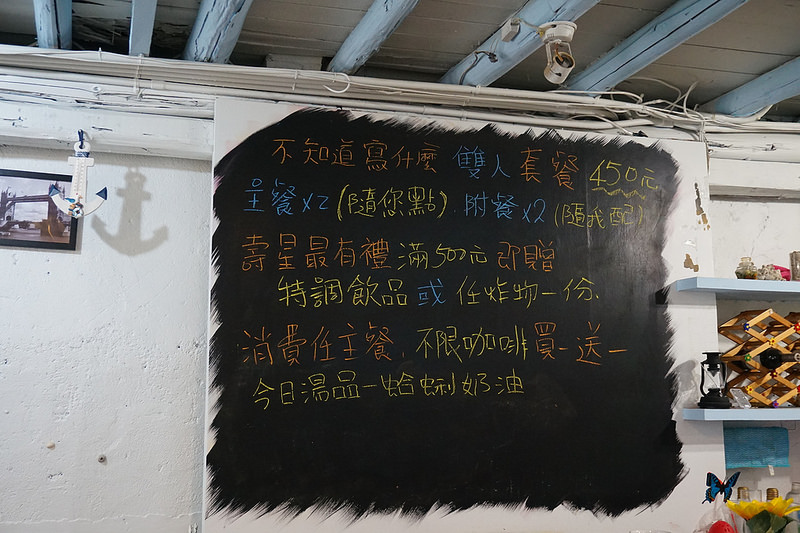 不知道寫什麼 雙人套餐 450元
主餐x2 (隨您點). 附餐x2 (隨我配)
壽星最有禮 滿500元 即贈
特調飲品 或 任炸物一份.
消費任主餐, 不限咖啡買一送一
今日湯品-蛤蜊奶油